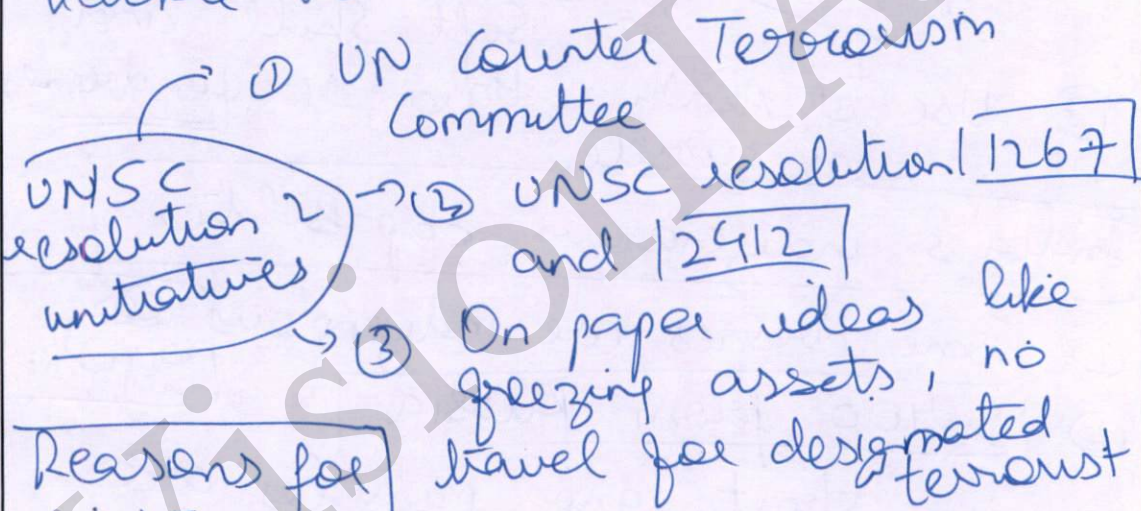 ① UN Counter Terrorism
Committee
UNSC
resolution 2
initiatives
② UNSC resolution 1267
and 2412
③ On paper ideas like
freezing assets, no
travel for designated
terrorist
Reasons for
VisionIA